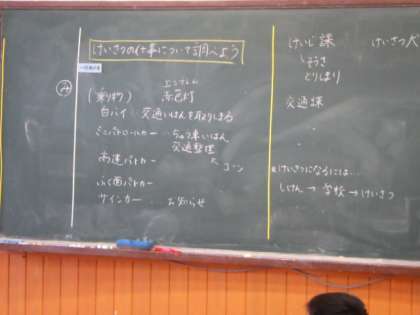 けいさつの仕事について調べよう
み
(乗り物) 赤色灯
白バイ 交通いはんを取りしまる
ミニパトロールカー…ちゅう車いはん
交通整理
高速パトカー
ふく面パトカー
サインカー…お知らせ
けいじ課
そうさ
とりしまり
交通課
けいさつ犬
けいさつになるには…
しけん→学校→けいさつ